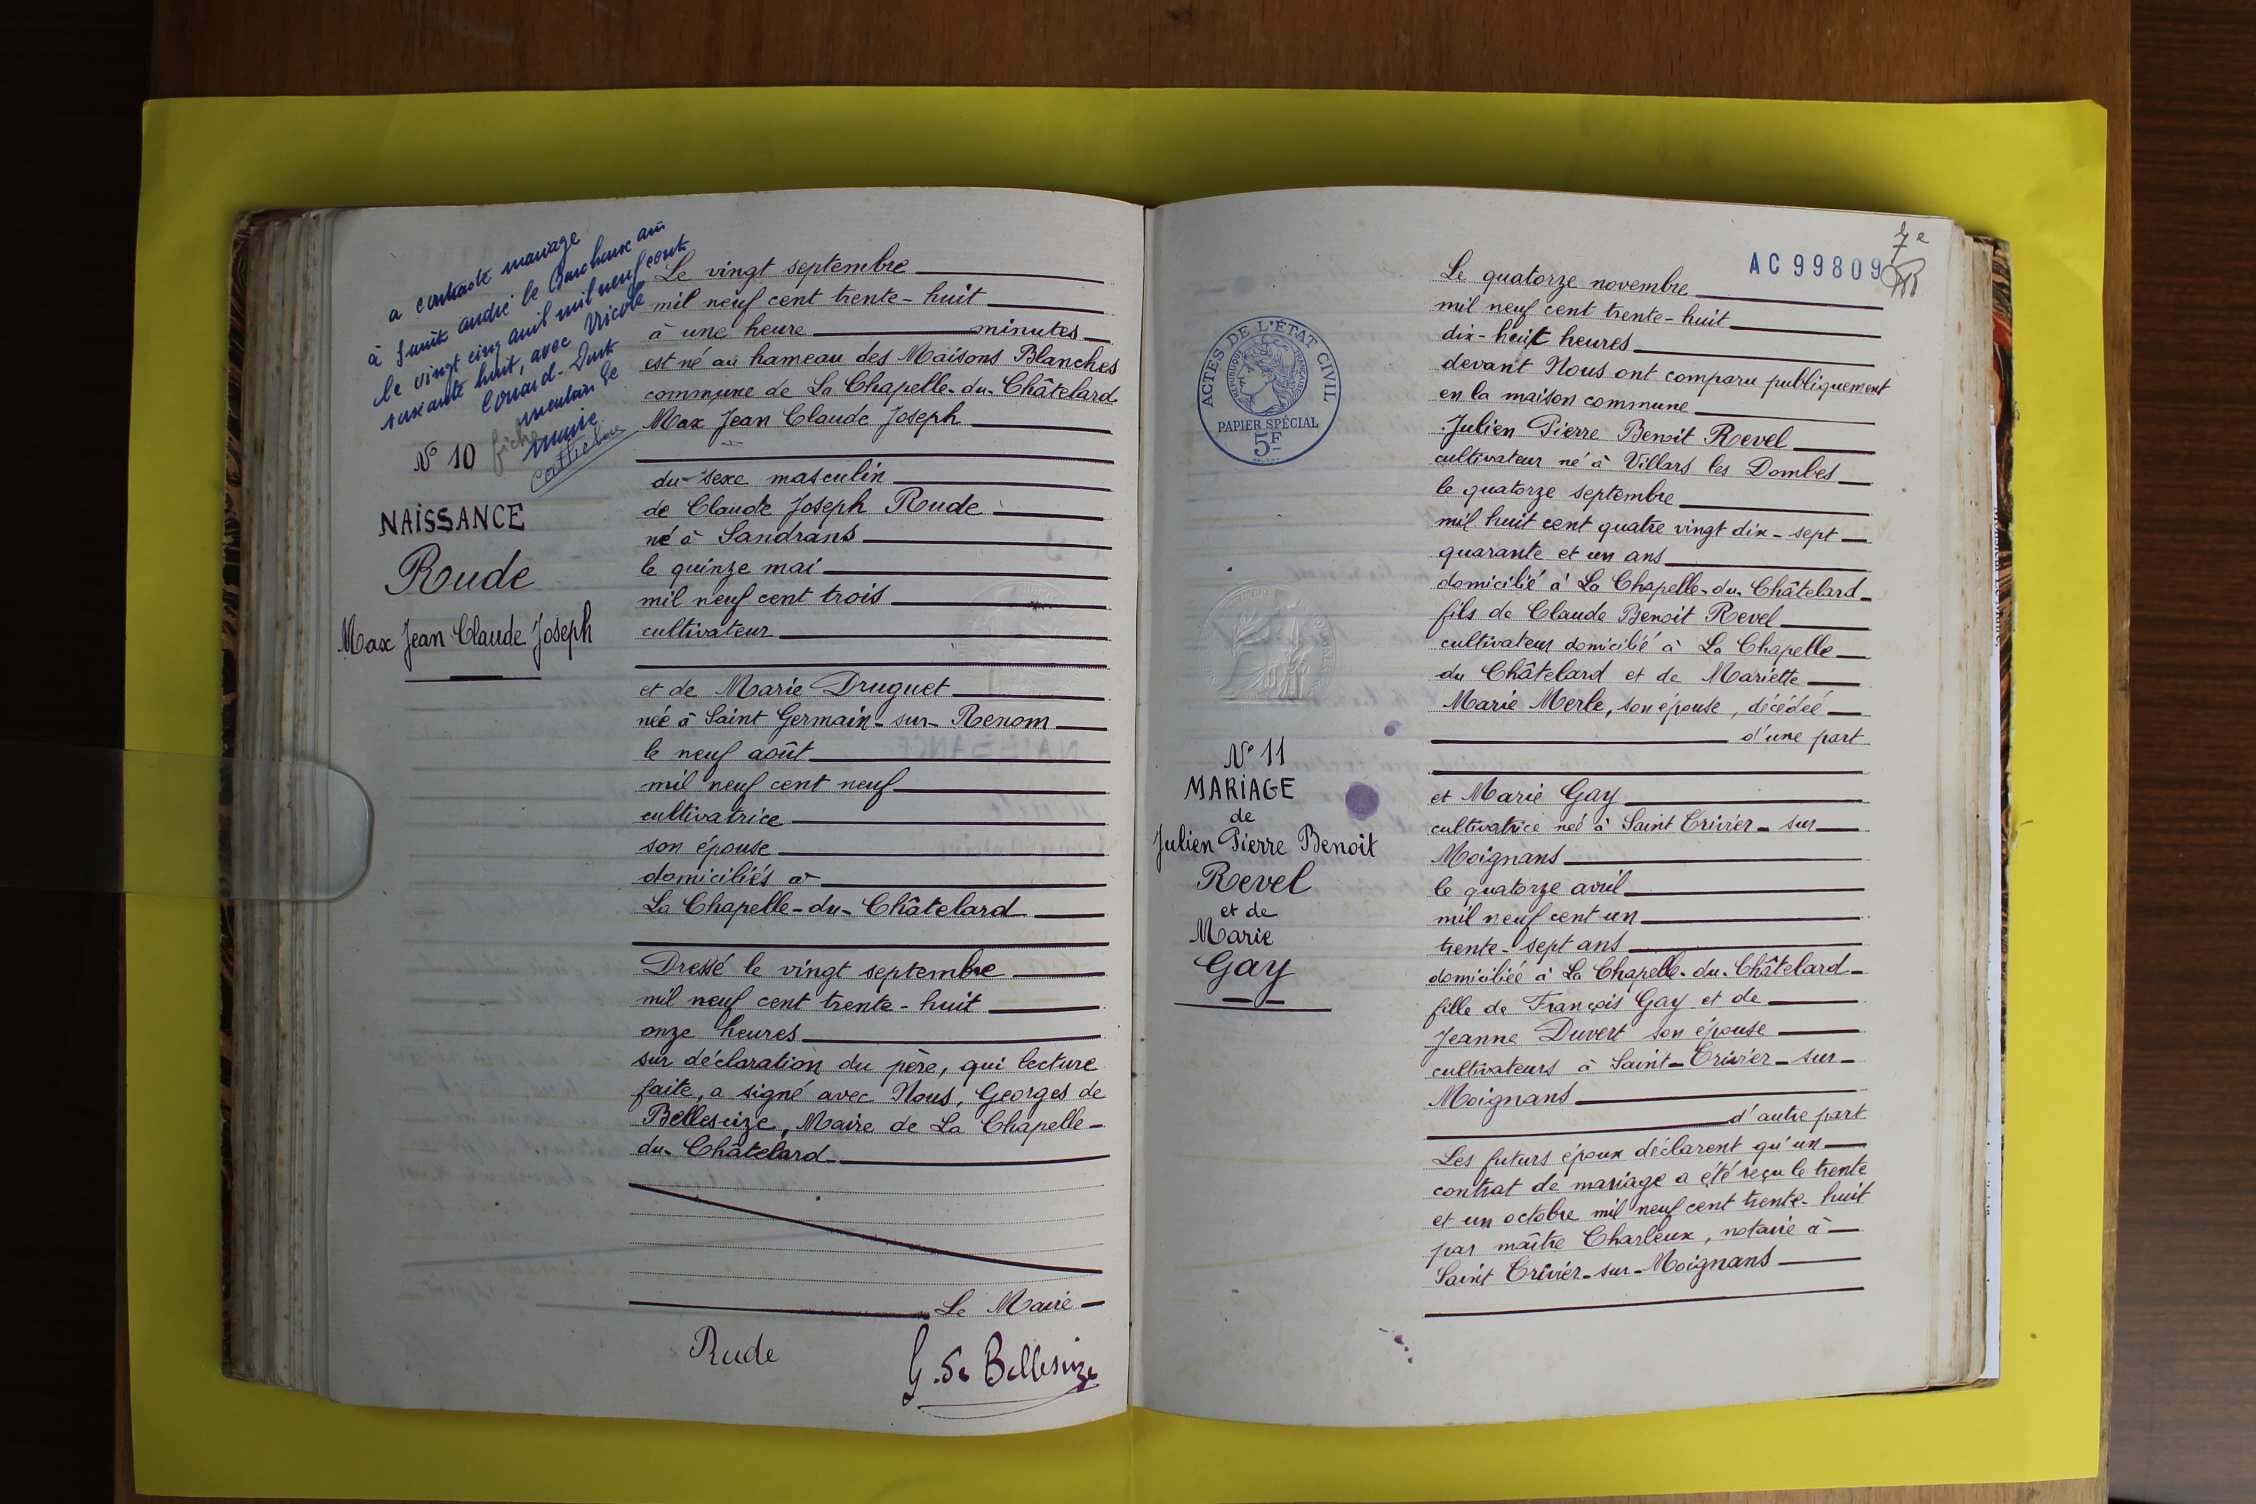 a contracté mariage
à Saint andré le Bouchoux ain
le vingt cinq avril mil neuf cent
soixante huit, avec Nicole
mention de
mairie
N° 10
NAISSANCE
Rude
Max Jean Claude Joseph
Le vingt septembre
mil neuf cent trente-huit
à une heure minutes
est né au hameau des Maisons Blanches
commune de La Chapelle-du-Châtelard
Max Jean Claude Joseph
du sexe masculin
de Claude Joseph Rude
né à Sandrans
le quinze mai
mil neuf cent trois
cultivateur
et de Marie Druguet
née à Saint Germain-sur-Renom
le neuf août
mil neuf cent neuf
cultivatrice
son épouse
domiciliés à
La Chapelle-du-Châtelard
Dressé le vingt septembre
mil neuf cent trente-huit
onze heures
sur déclaration du père, qui lecture
faite, a signé avec Nous, Georges de
Bellescize, Maire de La Chapelle-
du-Châtelard
Le Maire
Rude
G. de Bellescize
7e
AC 99809
ACTES DE L'ÉTAT CIVIL
RÉPUBLIQUE FRANÇAISE
PAPIER SPÉCIAL
5F
N° 11
MARIAGE
de
Julien Pierre Benoit
Revel
et de
Marie
Gay
Le quatorze novembre
mil neuf cent trente-huit
dix-huit heures
devant Nous ont comparu publiquement
en la maison commune
Julien Pierre Benoit Revel
cultivateur né à Villars les Dombes
le quatorze septembre
mil huit cent quatre vingt dix-sept
quarante et un ans
domicilié à La Chapelle-du-Châtelard
fils de Claude Benoit Revel
cultivateur domicilié à La Chapelle
du Châtelard et de Mariette
Marie Merle, son épouse, décédée
d'une part
et Marie Gay
cultivatrice neé à Saint Trivier-sur
Moignans
le quatorze avril
mil neuf cent un
trente-sept ans
domiciliée à La Chapelle-du-Châtelard
fille de François Gay et de
Jeanne Duvert son épouse
cultivateurs à Saint-Trivier-sur-
Moignans
d'autre part
Les futurs époux déclarent qu'un
contrat de mariage a été reçu le trente
et un octobre mil neuf cent trente-huit
par maître Charleux, notaire à
Saint Trivier-sur-Moignans